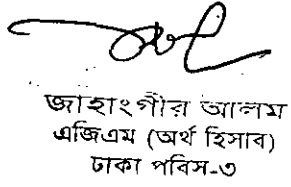 জাহাংগীর আলম
এজিএম (অর্থ হিসাব)
ঢাকা পবিস-৩